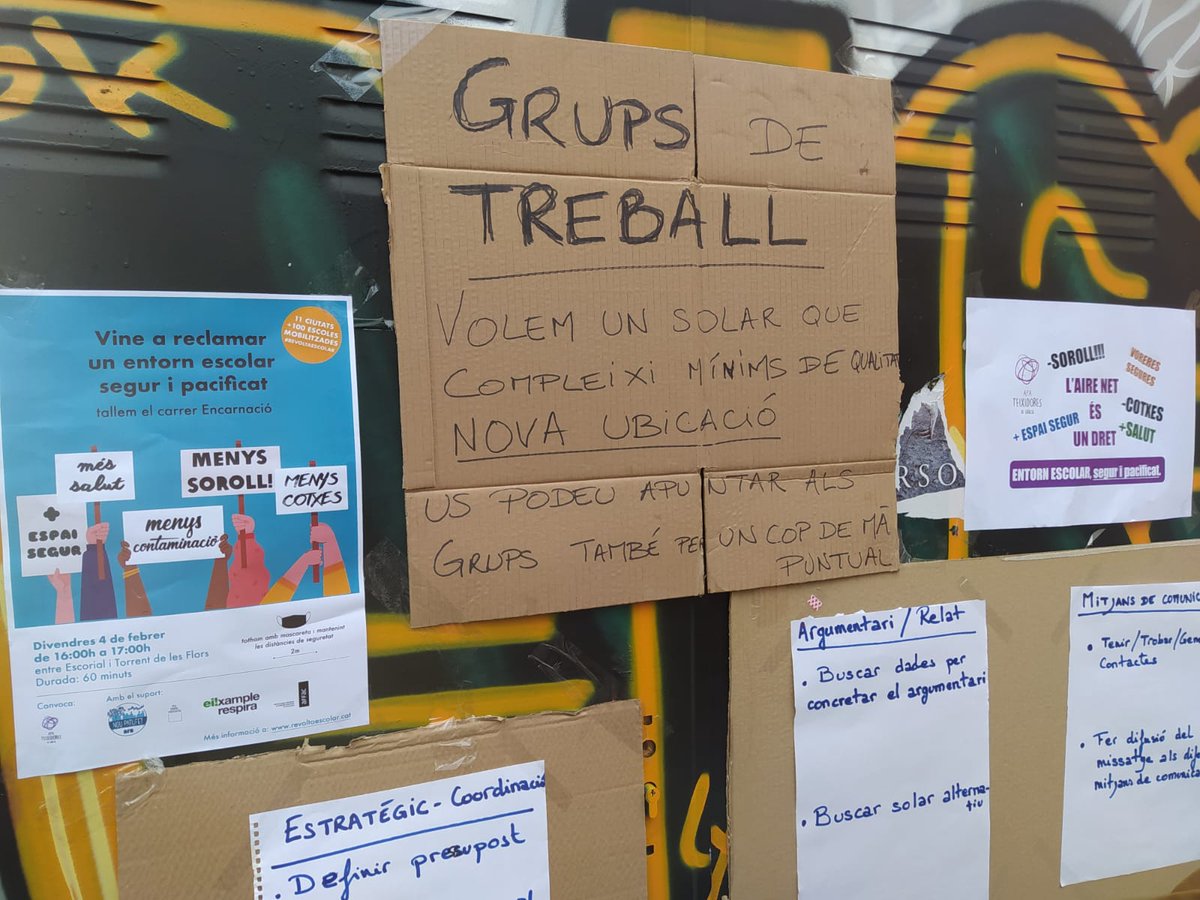 GRUPS DE
TREBALL
VOLEM UN SOLAR QUE
COMPLEIXI MÍNIMS DE QUALITAT
NOVA UBICACIÓ
US PODEU APUNTAR ALS
GRUPS TAMBÉ PER UN COP DE MÀ
PUNTUAL
11 CIUTATS
+100 ESCOLES
MOBILITZADES
#REVOLTAESCOLAR
Vine a reclamar
un entorn escolar
segur i pacificat
tallem el carrer Encarnació
més
salut
MENYS
SOROLL!
MENYS
COTXES
+
ESPAI
SEGUR
menys
contaminació
Divendres 4 de febrer
de 16:00h a 17:00h
entre Escorial i Torrent de les Flors
Durada: 60 minuts
tothom amb mascareta i mantenint
les distàncies de seguretat
2m
Convoca:
Amb el suport:
eixample
respira
Més informació a: www.revoltaescolar.cat
-SOROLL!!!
VORERES
SEGURES
L'AIRE NET
AFA
TEIXIDORES
-COTXES
+ ESPAI SEGUR
ÉS
+SALUT
UN DRET
ENTORN ESCOLAR, segur i pacificat.
ERSO
ESTRATÉGIC - Coordinació
• Definir presupost
Argumentari / Relat
• Buscar dades per
concretar el argumentari
• Buscar solar alterna-
tiu
MITJANS DE COMUNIC
• Tenir/Trobar/Gene
Contactes
• Fer difusió del
missatge als dife
mitjans de comunica